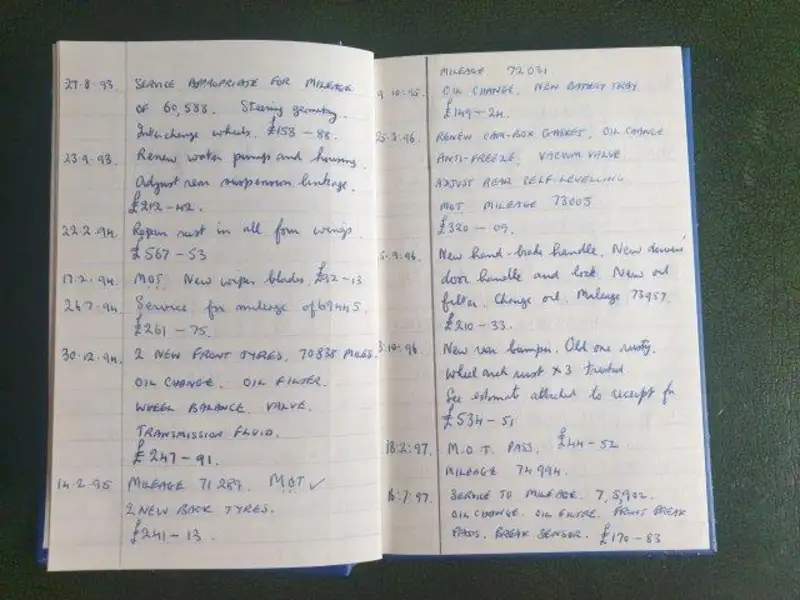 27.8.93 SERVICE APPROPRIATE FOR MILEAGE
OF 60,588. Steering geometry.
Interchange wheels. £153-88.
23.9.93. Renew water pump and housing.
Adjust rear suspension linkage.
£212-42.
22.2.94. Repair rust in all four wings
£567-53
17.2.94. MOT. New wiper blades. £92-13
26.7.94. Service for mileage of 69445.
£261-75.
30.12.94. 2 NEW FRONT TYRES. 70835 MILES.
OIL CHANGE. OIL FILTER.
WHEEL BALANCE. VALVE.
TRANSMISSION FLUID.
£247-91.
14.2.95 MILEAGE 71289. MOT ✓
2 NEW BACK TYRES.
£241-13.
MILEAGE 72031
9.10.95. OIL CHANGE. NEW BATTERY TRAY.
£149-24.
25.3.96. RENEW CAM-BOX GASKET. OIL CHANGE
ANTI-FREEZE. VACUUM VALVE.
ADJUST REAR SELF-LEVELLING
MOT MILEAGE 73005
£320-09.
5.9.96. New hand-brake handle. New drivers'
door handle and lock. New oil
filter. Change oil. Mileage 73957.
£210-33.
3.10.96 New rear bumper. Old one rusty.
Wheel arch rust x3 treated.
See estimate attached to receipt for
£534-51
18.2.97. M.O.T. PASS. £44-52
MILEAGE 74994.
16.7.97. SERVICE TO MILEAGE. 75,902.
OIL CHANGE. OIL FILTRE. FRONT BREAK
PADS. BREAK SENSOR. £170-83